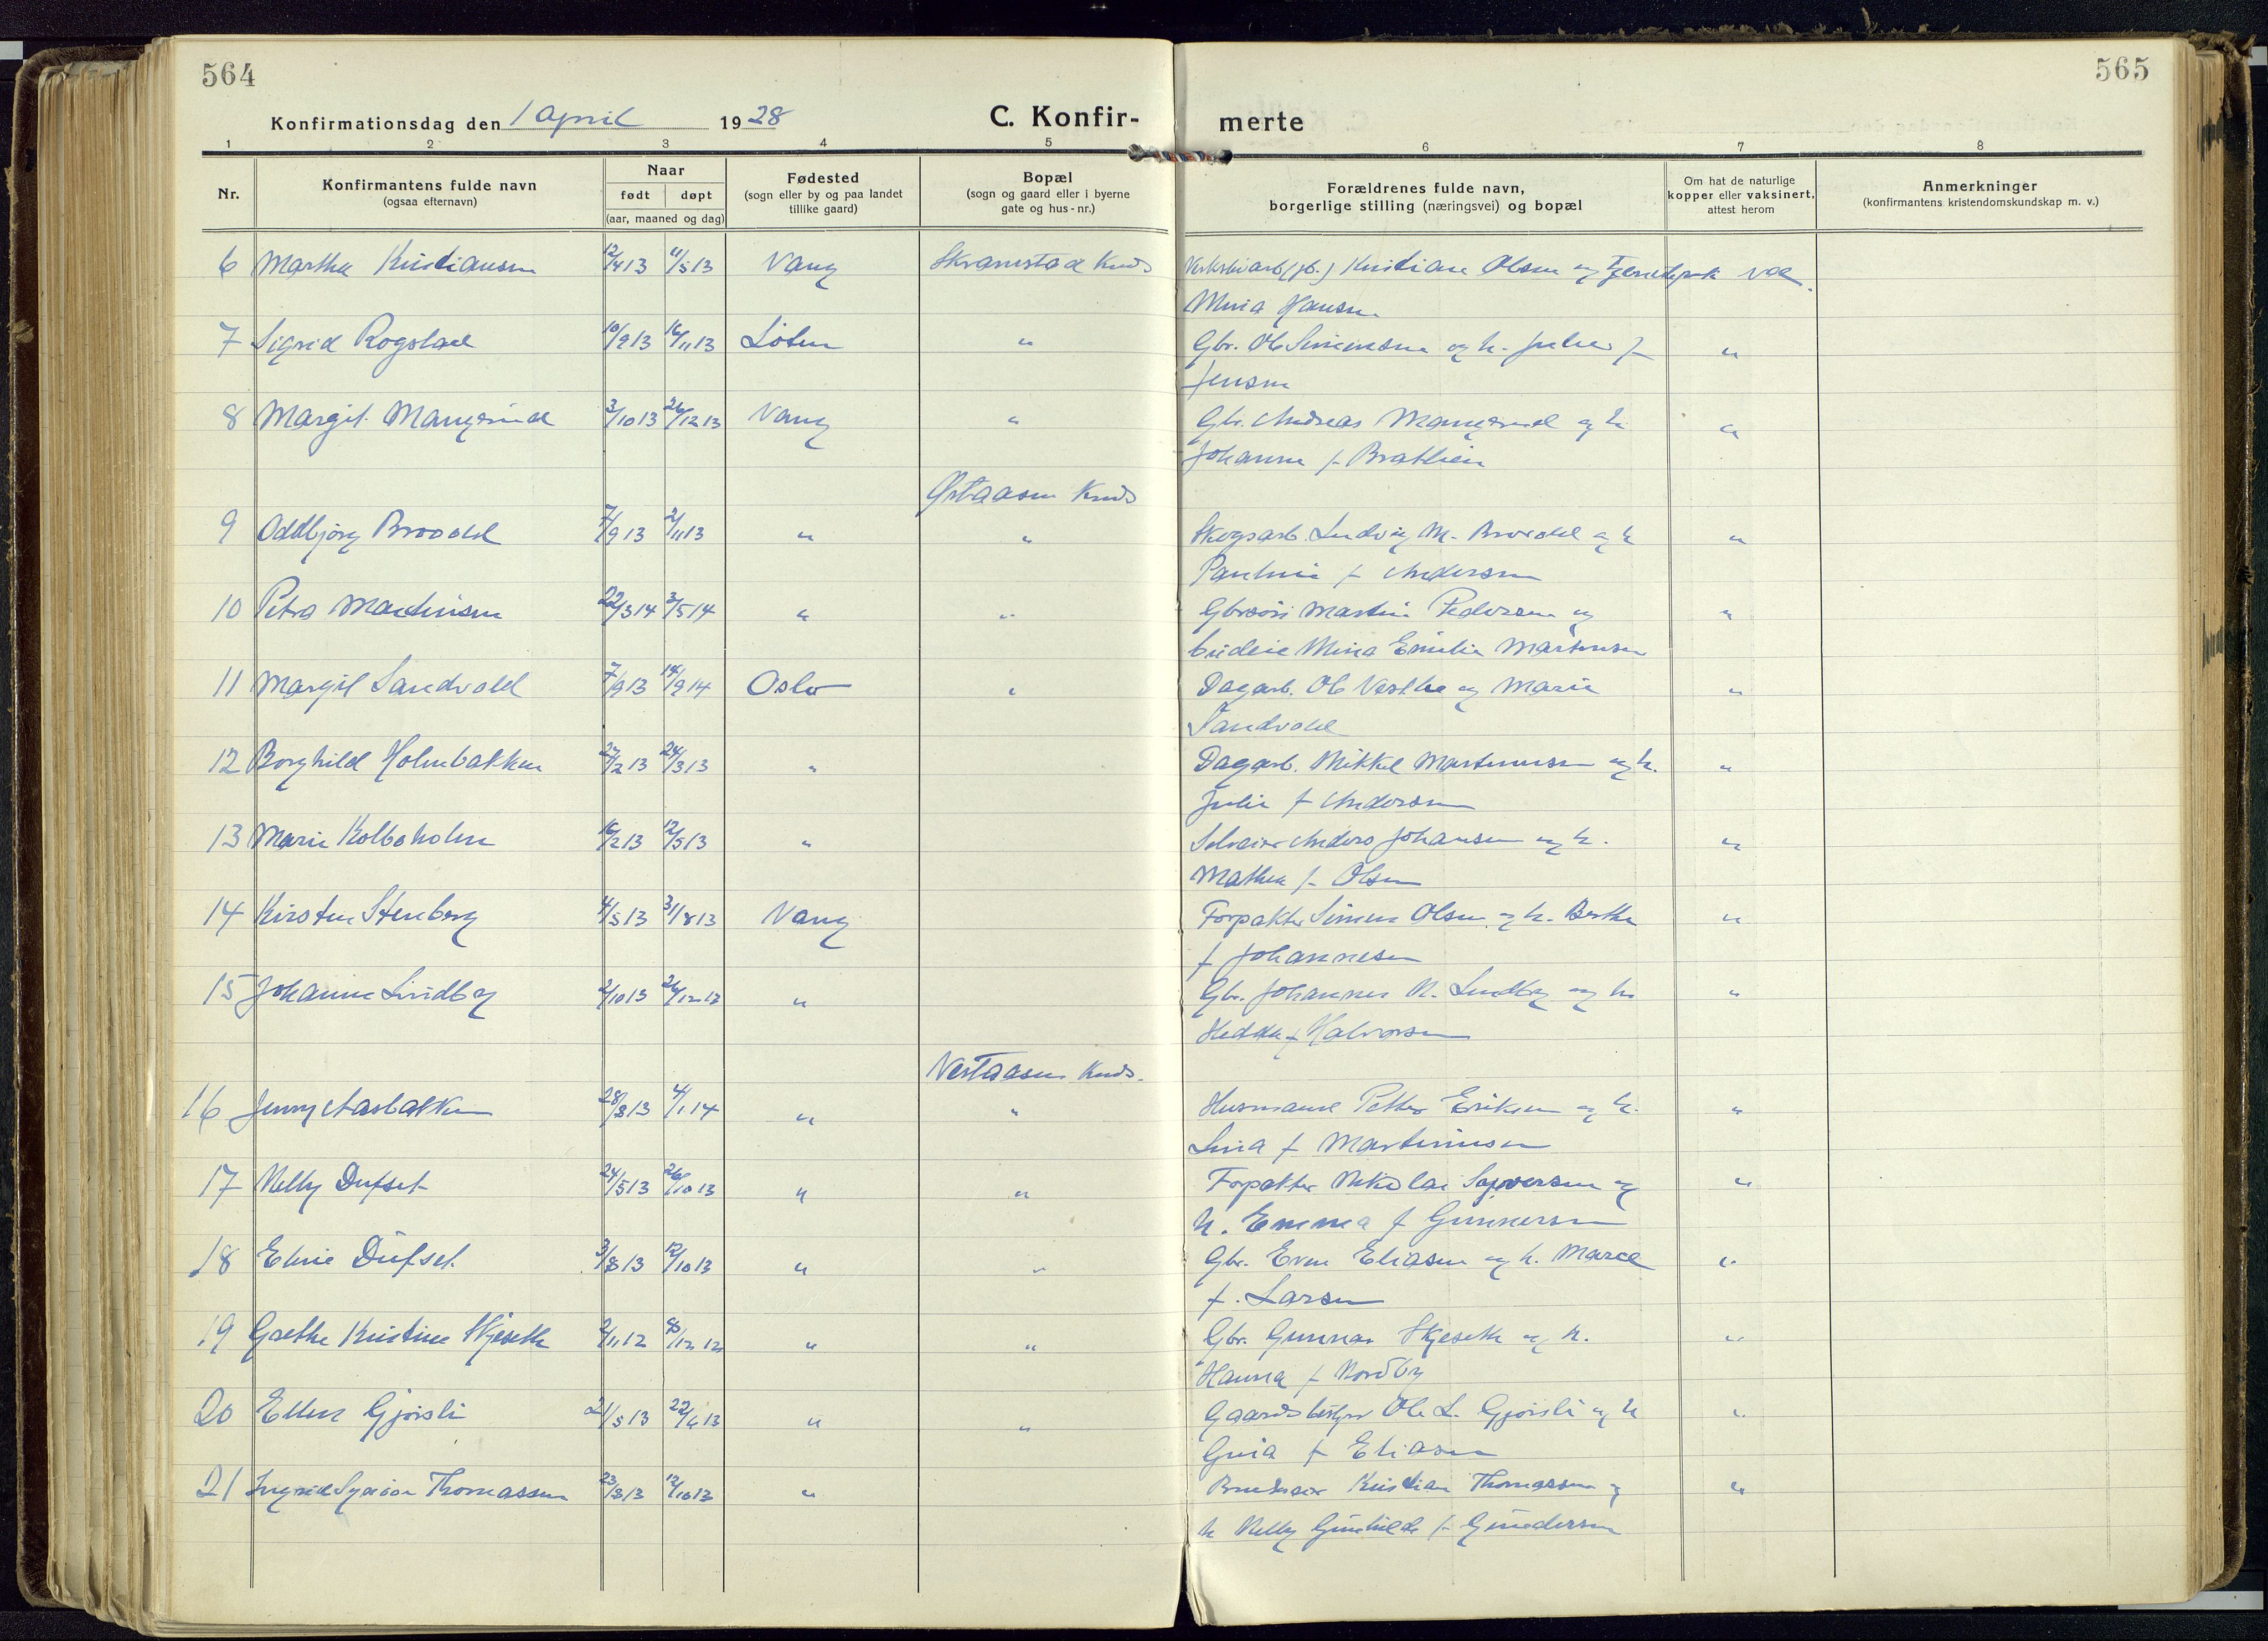 564
565
Konfirmationsdag den 1 April 1928
C. Konfir-
merte
1 2 3 4 5 6 7 8
Nr.
Konfirmantens fulde navn
(ogsaa efternavn)
Naar
født døpt
(aar, maaned og dag)
Fødested
(sogn eller by og paa landet
tillike gaard)
Bopæl
(sogn og gaard eller i byerne
gate og hus-nr.)
Forældrenes fulde navn,
borgerlige stilling (næringsvei) og bopæl
Om hat de naturlige
kopper eller vaksinert,
attest herom
Anmerkninger
(konfirmantens kristendomskundskap m. v.)
6 Marthe Kristiansen 12/4 13 11/5 13 Vang Skramstad Kreds Kristian Olsen og vac.
Mina Hansen
7 Sigrid Rogstad 10/9 13 16/11 13 Löten " Gbr. Ole Simensen og h. f
Jensen "
8 Margit Mangrud 3/10 13 26/12 13 Vang " Gbr. Andreas Mangrud og h "
Johanne f. Bratlien
Östaasen Kreds
9 Oddbjörg Brovold 7/9 13 2/11 13 " " Skogsarb. Ludvig M. Brovold og h "
Pauline f Andersen
10 Petra Martinsen 22/3 14 3/5 14 " " Gbrsön Martin Pedersen og "
budeie Mina Emilie Martinsen
11 Margit Sandvold 7/9 13 14/9 14 Oslo " Dagarb. Ole og Marie "
Sandvold
12 Borghild Holmbakken 27/2 13 24/3 13 " Dagarb. Mikkel Martinusen og h. "
Julie f Andersen
13 Marie Kolboholm 16/2 13 12/5 13 " Selveier Anders Johansen og h. "
Mathea f. Olsen
14 Kirsten Stenberg 4/5 13 31/8 13 Vang Forpakter Simen Olsen og h. Berthe "
f Johannesen
15 Johanne Lindby 2/10 13 26/12 13 " Gbr. Johannes N. Lindby og h. "
Hedda f Halvorsen
Vestaasen Kreds.
16 Jenny Aasbakken 28/8 13 4/1 14 " " Husmand Petter Eriksen og h. "
Lina f Martinusen
17 Nelly Dufset 24/5 13 26/10 13 " " Forpakter Nikolai Syversen og "
h. Emma f Gunnersen
18 Elvie Dufset 3/8 13 12/10 13 " " Gbr. Even Eliasen og h. "
f. Larsen
19 Grethe Kristine Skjeseth 2/11 12 8/12 12 " " Gbr. Gunnar Skjeseth og h. "
Hanna f Nordby
20 Ellen Gjørsli 21/5 13 22/6 13 " " Gaardsbestyr Ole L. Gjørsli og h "
f Eliasen
21 Ingrid Thomassen 23/8 13 12/10 13 " Kristian Thomassen og "
h Nelly Gunhilde f. Gundersen